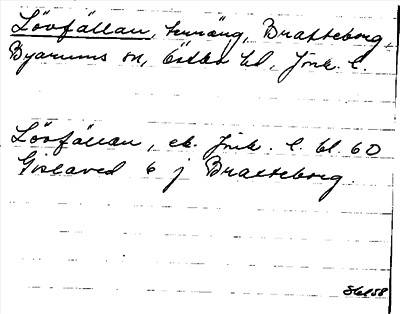 Lövfällan, hmäng, Bratteborg,
Byarums sn, Östbo hd, Jönk. l.
Lövfällan, ek. Jönk. l. bl. 60
Gislaved 6 j Bratteborg.